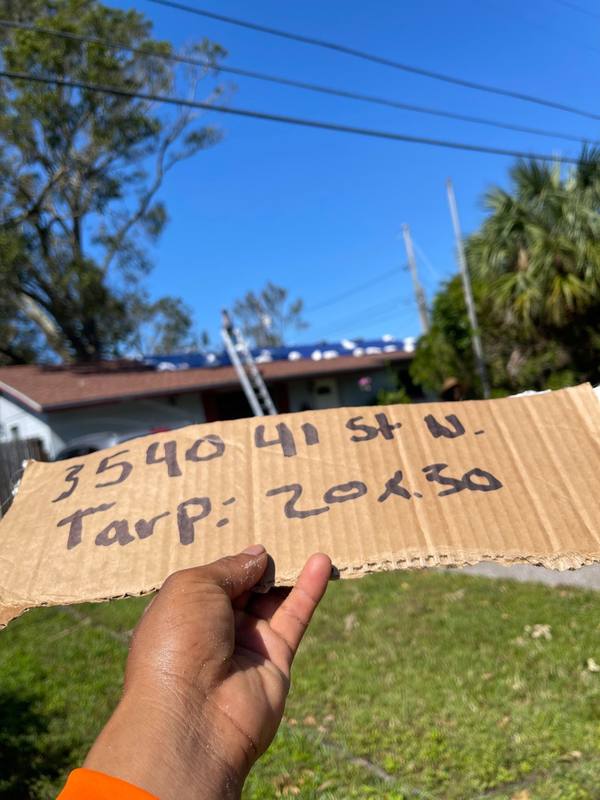 3540 41 St N.
Tarp: 20x.30